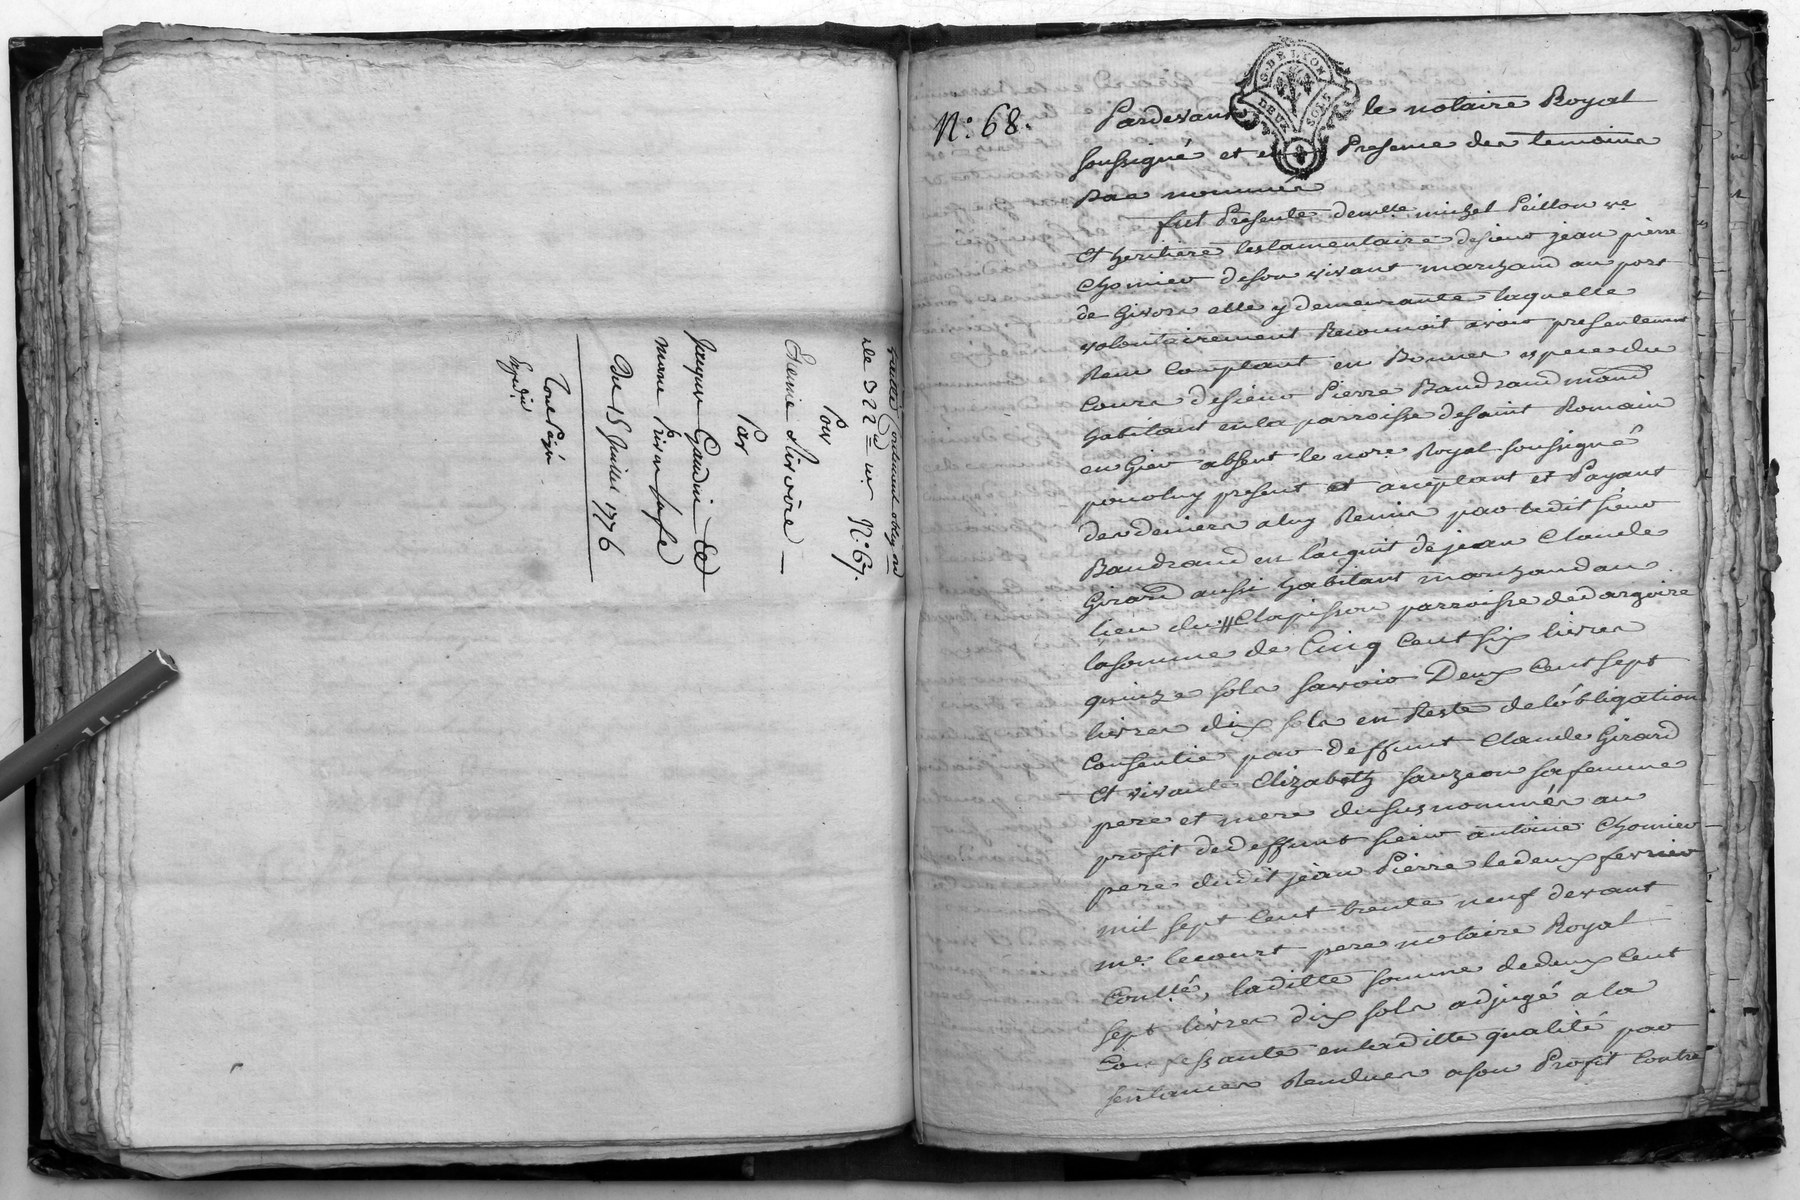 N.º 67.
Pour
Etienne Sirvoire
Par
Jaques Gaudin et
marie Prison sa feme
Du 15 Juillet 1776
G. DE LYON
DEUX SOLS
N.º 68.
Pardevant le notaire Royal
soussigné et en Presence des temoins
Bas nommés
fut Presente demlle michel Peillon ve
Et heritiere testamentaire de sieur jean pierre
Chomier de son vivant marchand au port
de Givors elle y demeurante laquelle
volontairement Reconnoit avoir presentement
Reçu comptant en Bonnes especes du
Cours de sieur Pierre Baudrand mand
habitant en la parroisse de saint Romain
en Gier absent le nore Royal soussigné
pour luy present et acceptant et Payant
des deniers a luy Remis par ledit sieur
Baudrand en l'acquit de jean Claude
Girard aussi habitant marchand au
lieu du Clapisson parroisse de dargoire
la somme de Cinq Cent six livres
quinze sols savoir Deux Cent sept
livres dix sols en Reste de l'obligation
Consentie par deffunt Claude Girard
Et vivante Elizabeth sauzeon sa femme
pere et mere du susnommés au
profit de deffunt sieur antoine Chomier
pere dudit jean Pierre le deux fevrier
mil sept Cent trente neuf devant
me. lecourt pere notaire Royal
Contllé, laditte somme de deux Cent
sept livres dix sols adjugé a la
Confessante en laditte qualité par
sentences Rendues a son Profit Contre